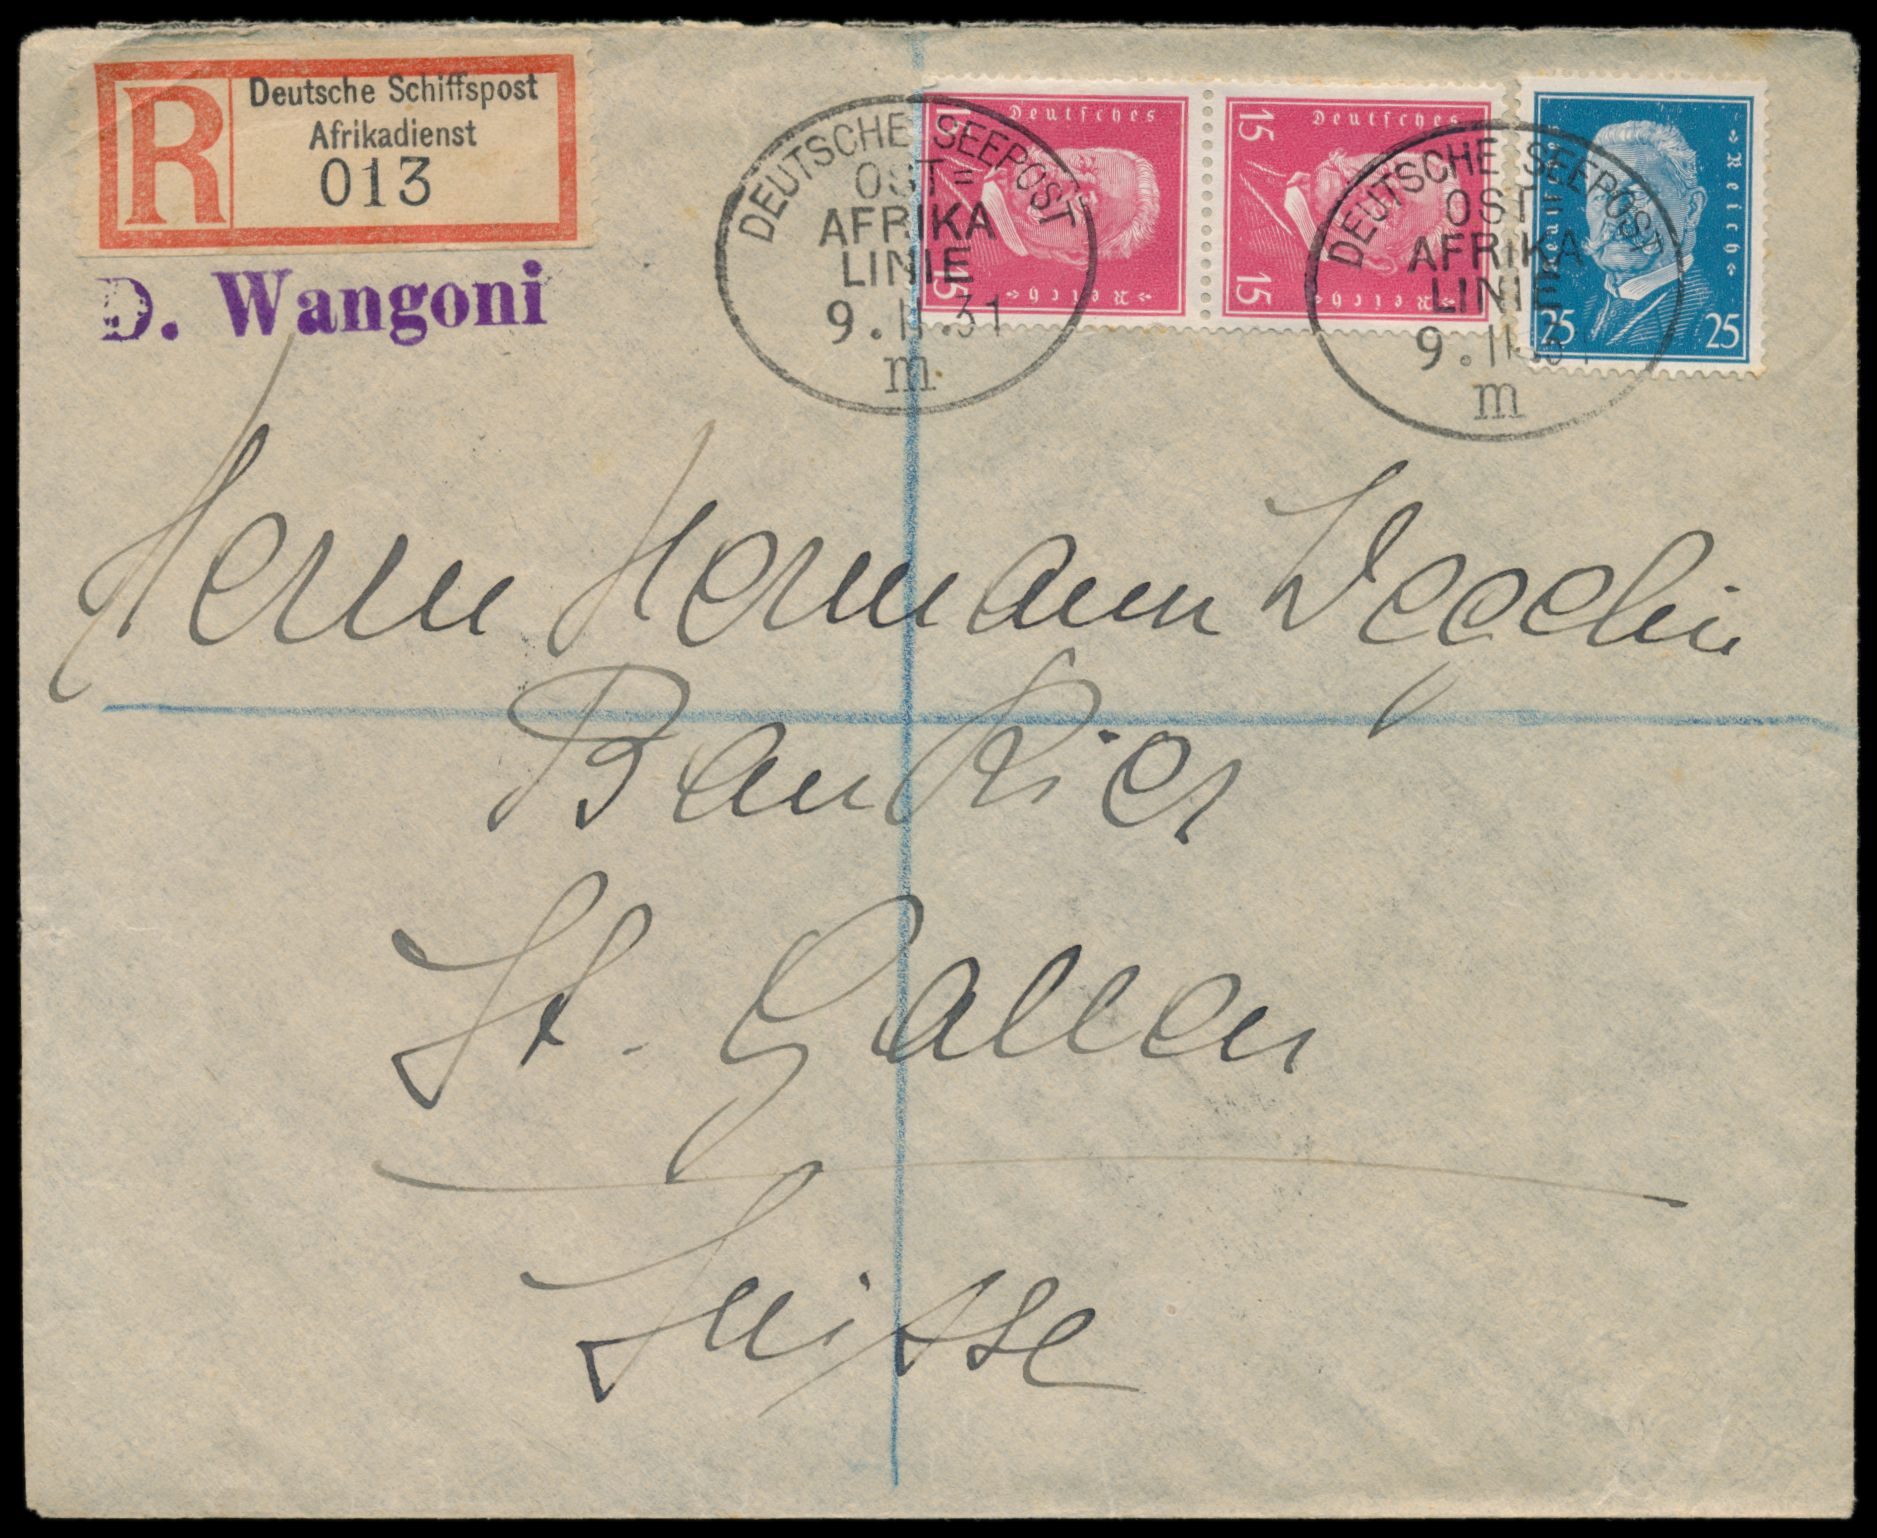 R
Deutsche Schiffspost
Afrikadienst
013
D. Wangoni
DEUTSCHE SEEPOST
OST=
AFRIKA
LINIE
9.II.31
m
15 Deutsches Reich 15
15 Deutsches Reich 15
DEUTSCHE SEEPOST
OST=
AFRIKA
LINIE
9.II.31
m
Deutsches Reich
25 25
Herrn Hermann
Bankier
St. Gallen
Suisse